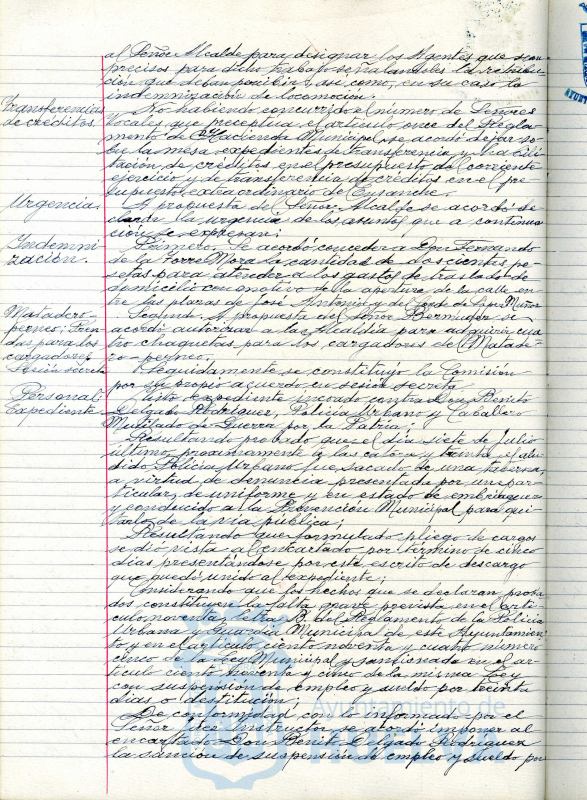 al Señor Alcalde para designar los Agentes que sean
precisos para dicho trabajo señalándoles la retribu-
ción que deban percibir y así como, en su caso la
indemnización de locomoción.
Transferencias
de créditos.
No habiendo concurrido el número de Señores
Vocales que preceptúa el artículo once del Regla-
mento de Hacienda Municipal, se acordó dejar so-
bre la mesa expedientes de transferencia y habili-
tación de créditos en el presupuesto del corriente
ejercicio y de transferencia de créditos en el pre-
supuesto extraordinario de Ensanche.
Urgencia.
A propuesta del Señor Alcalde se acordó de-
clarar la urgencia de los asuntos que a continua-
ción se expresan:
Indemni-
zación.
Primero. Se acordó conceder a Don Fernando
de la Torre Mora la cantidad de doscientas pe-
setas para atender a los gastos de traslado de
domicilio con motivo de la apertura de la calle en-
tre las plazas de José Antonio y del Conde de López Muñoz
Matadero-
porcno; pren-
das para los
cargadores
Segundo. A propuesta del Señor Bermúdez se
acordó autorizar a la Alcaldía para adquirir cua-
tro chaquetas para los cargadores del Matade-
ro-porcno.
Sesión secreta
Seguidamente se constituyó la Comisión
por su propio acuerdo en sesión secreta.
Personal
Expediente
Visto expediente incoado contra Don Benito
Delgado Rodríguez, Policía Urbano y Caballero
Mutilado de Guerra por la Patria;
Resultando probado que el día siete de Julio
último, proximamente a las catorce y treinta el alu-
dido Policía Urbano fue sacado de una taberna,
a virtud de denuncia presentada por un par-
ticular, de uniforme y en estado de embriaguez
y conducido a la Prevención Municipal para qui-
tarlo de la vía pública;
Resultando que formulado pliego de cargos
se dió vista al encartado por término de cinco
días presentándose por este escrito de descargo
que quedó unido al expediente;
Considerando que los hechos que se declaran proba-
dos constituyen la falta grave prevista en el artí-
culo noventa, letra B. del Reglamento de la Policía
Urbana y Guardia Municipal de este Ayuntamien-
to y en el artículo ciento noventa y cuatro número
cinco de la Ley Municipal y sancionada en el ar-
tículo ciento noventa y cinco de la misma Ley
con suspensión de empleo y sueldo por treinta
días o destitución;
De conformidad con lo informado por el
Señor Juez Instructor se acordó imponer al
encartado Don Benito Delgado Rodríguez
la sanción de suspensión de empleo y sueldo por
Ayuntamiento de
HUELVA